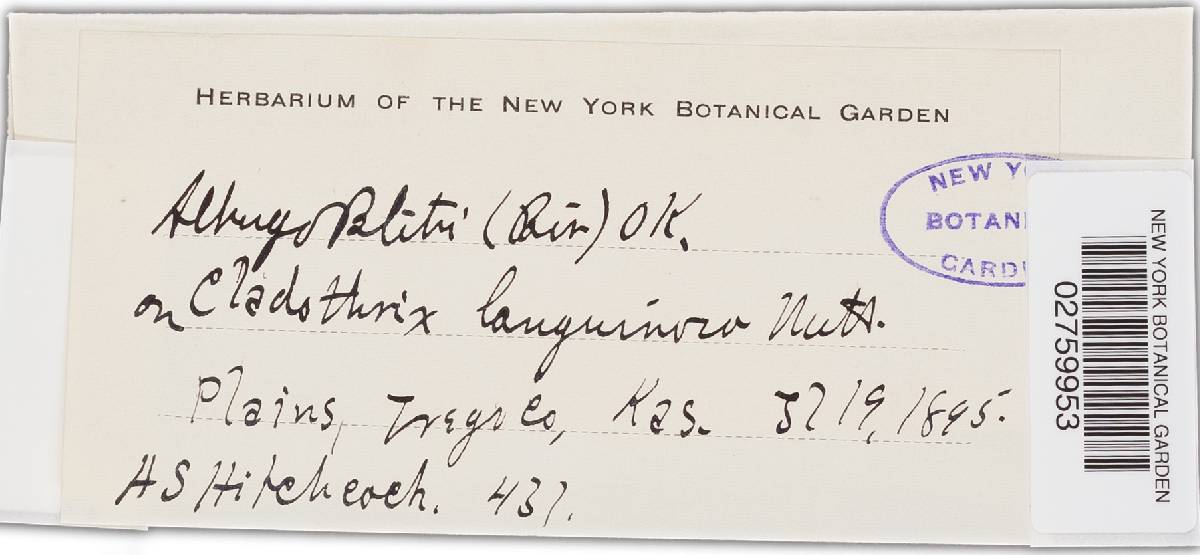 HERBARIUM OF THE NEW YORK BOTANICAL GARDEN
NEW Y
BOTANI
GARD
Albugo Bliti (Biv) OK.
on Cladothrix lanuginosa Nutt.
Plains, Trego Co, Kas. Jl 19, 1895.
AS Hitchcock. 437.
NEW YORK BOTANICAL GARDEN
02759953